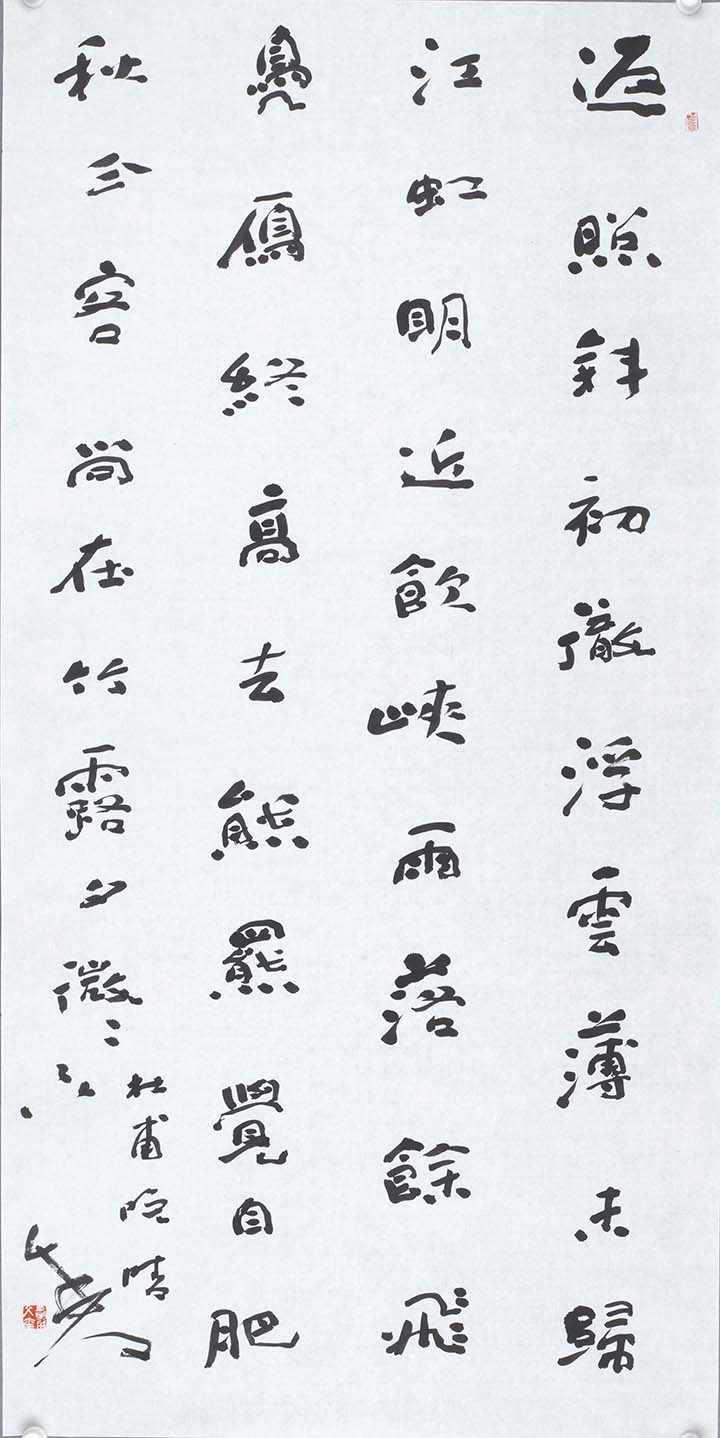 返照斜初徹浮雲薄未歸
江虹明近飲峽雨落餘飛
鳧鴈終高去熊羆覺自肥
秋分客尚在竹露夕微々
杜甫晚晴